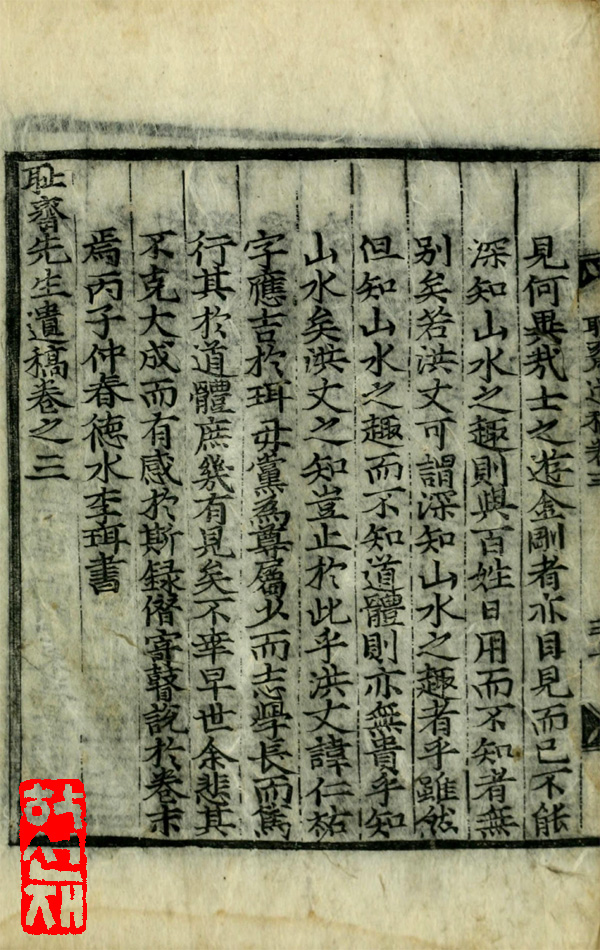 見何異㢤士之遊金剛者亦目見而已不能
深知山水之趣則與百姓日用而不知者無
别矣若洪丈可謂深知山水之趣者乎雖然
但知山水之趣而不知道體則亦無貴乎知
山水矣洪丈之知豈止於此乎洪丈諱仁祐
字應吉於珥母黨爲尊屬少而志學長而篤
行其於道體庶幾有見矣不幸早世余悲其
不克大成而有感於斯録僭寄瞽說於卷末
焉丙子仲春德水李珥書
耻齋先生遺稿卷之三
耻齋遺稿卷三
하선재